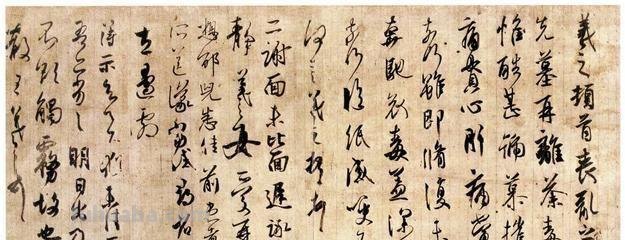 羲之頓首喪亂之
先墓再離荼毒
惟酷甚號慕摧
痛貫心肝痛當
奈何雖即脩復未
奔馳哀毒益深
奈何臨紙感哽
何言羲之頓首
二謝面未比面遲詠
靜羲之女愛再
想邵兒悉佳前患者
送議當試尋省
左邊劇
得示知足下猶未佳
吾亦劣劣明日出乃
不欲觸霧故也
散王羲之頓首